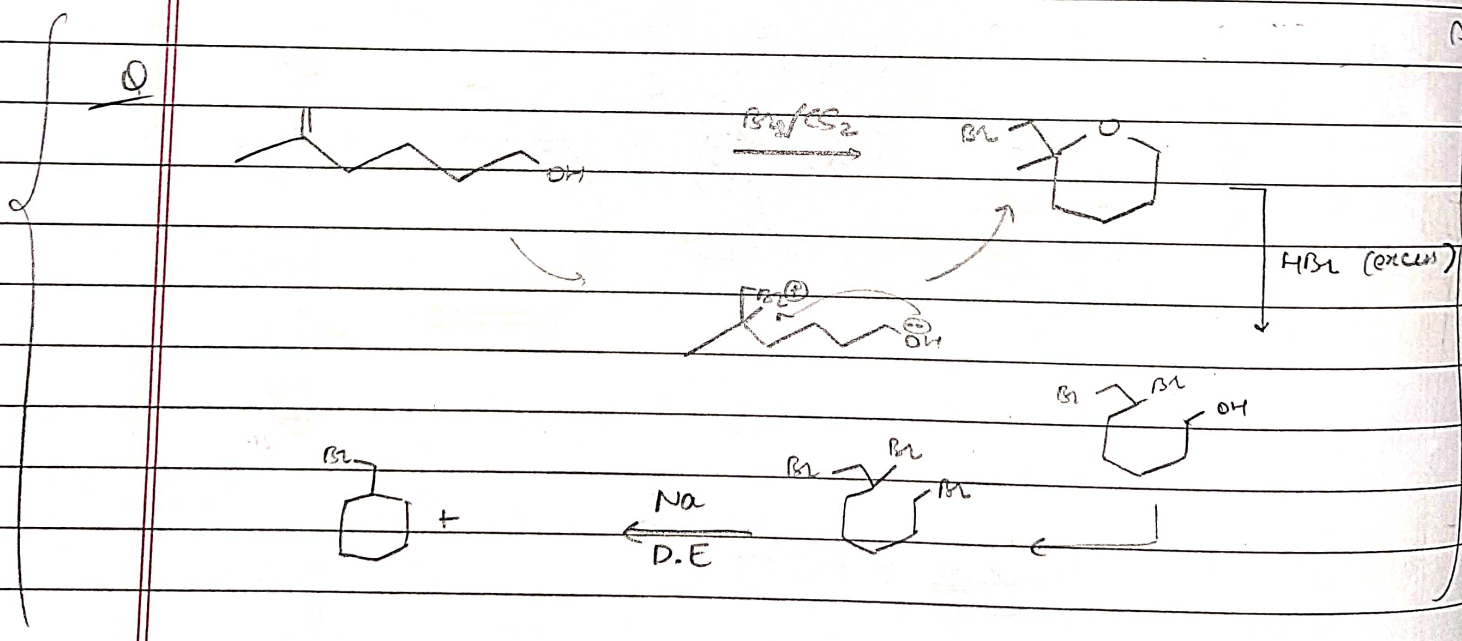 Q
OH
Br2/CS2
Br
O
HBr (excess)
Br ⊕
OH
Br
Br
OH
Br
+
Na
D.E
Br
Br
Br